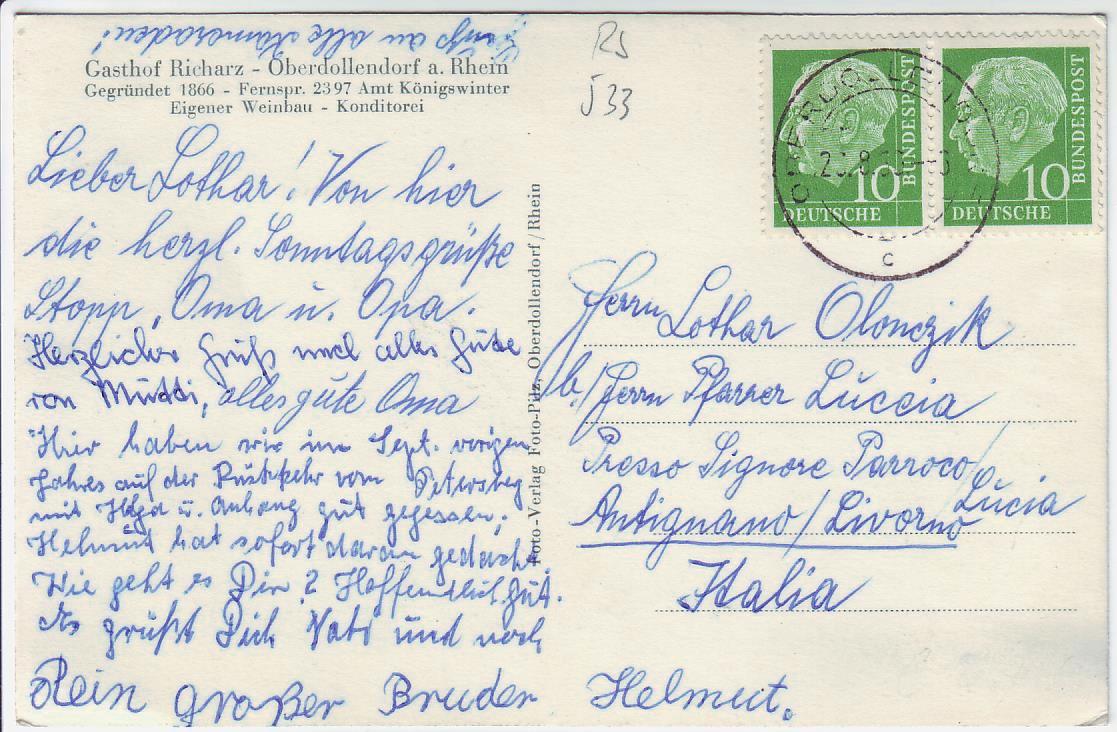 Gruß an alle Kameraden!
Gasthof Richarz - Oberdollendorf a. Rhein
Gegründet 1866 - Fernspr. 2397 Amt Königswinter
Eigener Weinbau - Konditorei
Lieber Lothar! Von hier
die herzl. Sonntagsgrüße
Stopp, Oma u. Opa.
Herzlicher Gruß und alles Gute
von Muddi, alles gute Oma
Hier haben wir im Sept. vorigen
Jahres auf der Rückkehr vom Petersberg
mit Helga u. Anhang gut gegessen,
Helmut hat sofort daran gedacht.
Wie geht es Dir? Hoffentlich gut.
Es grüßt Dich Vati und noch
Dein großer Bruder Helmut.
Foto-Verlag Foto-Pilz, Oberdollendorf/Rhein
RS
J33
10
DEUTSCHE
BUNDESPOST
10
DEUTSCHE
BUNDESPOST
c
Herrn Lothar Olonczik
b/Herrn Pfarrer Luccia
Presso Signore Parroco/
Lucia
Antignano/Livorno
Italia